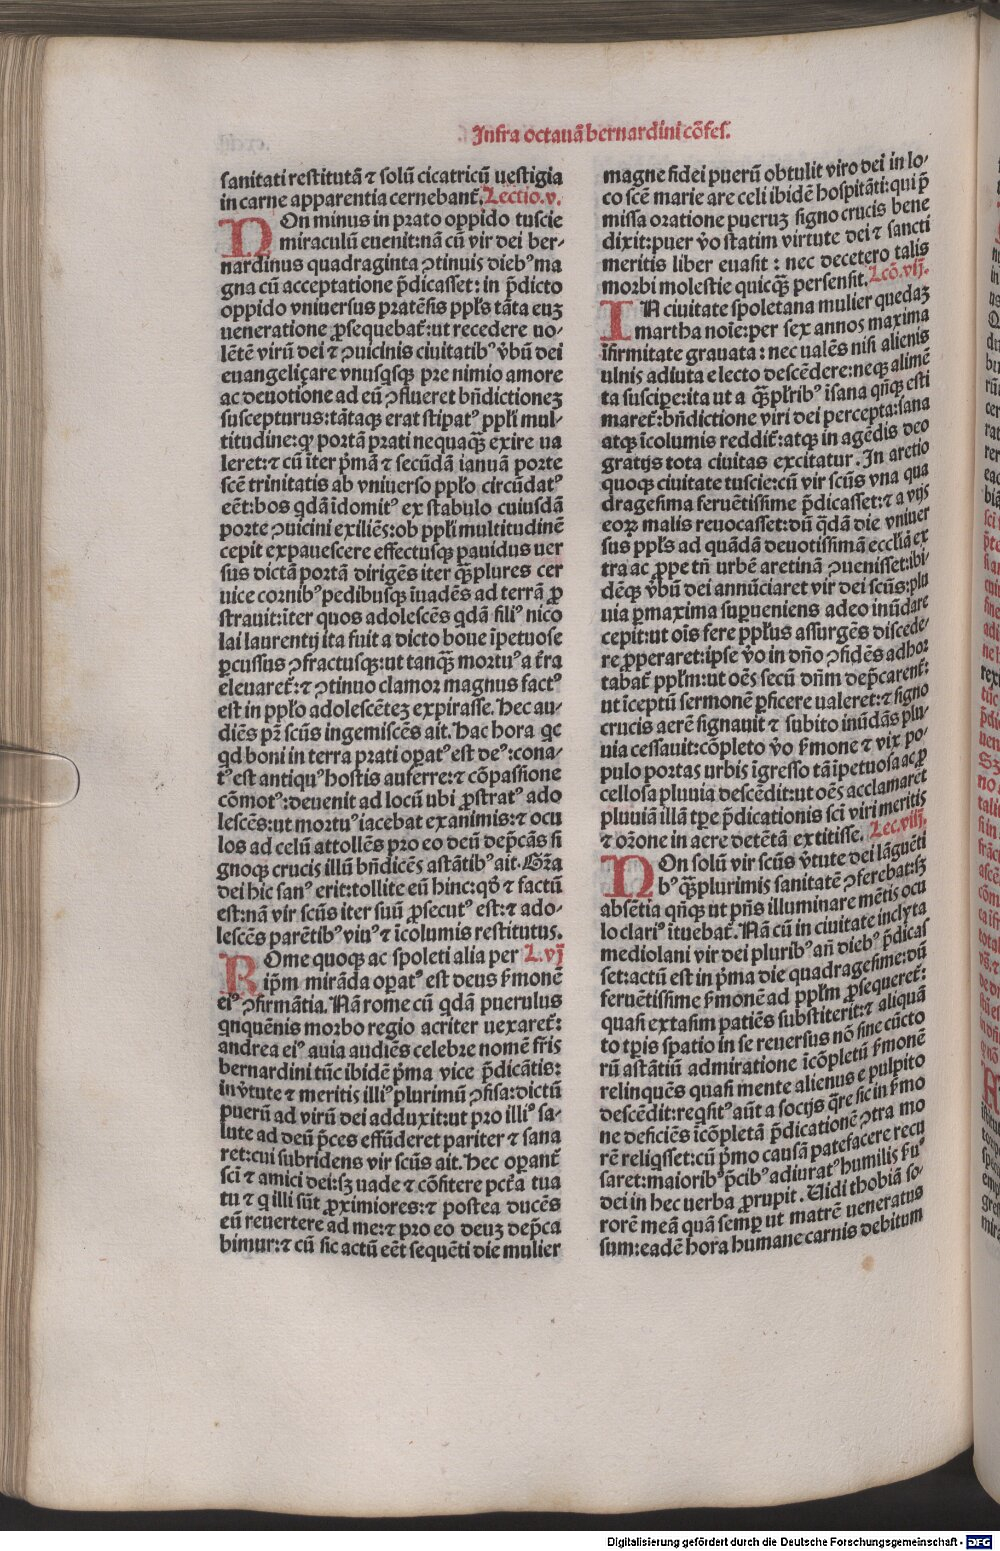 Infra octauā bernardini cōfes.
sanitati restitutā ⁊ solū cicatricū uestigia
in carne apparentia cernebant᷑. Lectio.v.
NOn minus in prato oppido tuscie
miraculū euenit: nā cū vir dei ber-
nardinus quadraginta ꝯtinuis diebꝰ ma
gna cū acceptatione p̄dicasset: in p̄dicto
oppido vniuersus pratēsis ppl̄s tāta euꝫ
ueneratione ꝓsequebat᷑: ut recedere uo-
lētē virū dei ⁊ ꝯuicinis ciuitatibꝰ v̄bū dei
euangeliçare vnusqsqꝫ pre nimio amore
ac deuotione ad eū ꝯflueret bn̄dictioneꝫ
suscepturus: tātaqꝫ erat stipatꝰ ppl̄i mul-
titudine: qꝫ portā prati nequaqꝫ̄ exire ua
leret: ⁊ cū īter p̄mā ⁊ secūdā ianuā porte
scē trinitatis ab vniuerso ppl̄o circūdatꝰ
eēt: bos qdā īdomitꝰ ex stabulo cuiusdā
porte ꝯuicini exiliēs: ob ppl̄i multitudinē
cepit expauescere effectusqꝫ pauidus uer
sus dictā portā dirigēs iter qꝫ̄plures cer
uice cornibꝰ pedibusqꝫ īuadēs ad terrā ꝓ
strauit: īter quos adolescēs qdā filiꝰ nico
lai laurentij ita fuit a dicto boue īpetuose
ꝑcussus ꝯfractusqꝫ: ut tanqꝫ̄ mortuꝰ a t̄ra
eleuaret᷑: ⁊ ꝯtinuo clamor magnus factꝰ
est in ppl̄o adolescēteꝫ expirasse. Hec au-
diēs pr̄ scūs ingemiscēs ait. Hac hora qe
qd boni in terra prati oꝑatꝰ est deꝰ: cona-
tꝰ est antiquꝰ hostis auferre: ⁊ cōpassione
cōmotꝰ: deuenit ad locū ubi ꝓstratꝰ ado
lescēs: ut mortuꝰ iacebat exanimis: ⁊ ocu
los ad celū attollēs pro eo deū dep̄cās si
gnoqꝫ crucis illū bn̄dicēs astātibꝰ ait. Gr̄a
dei hic sanꝰ erit: tollite eū hinc: qd̄ ⁊ factū
est: nā vir scūs iter suū ꝓsecutꝰ est: ⁊ ado-
lescēs parētibꝰ viuꝰ ⁊ īcolumis restitutus.
ROme quoqꝫ ac spoleti alia per L.vj
ip̄m mirāda oꝑatꝰ est deus s̄monē
eiꝰ ꝯfirmātia. Nā rome cū qdā puerulus
qnquēnis morbo regio acriter uexaret᷑:
andrea eiꝰ auia audiēs celebre nomē fr̄is
bernardini tūc ibidē p̄ma vice p̄dicātis:
in v̄tute ⁊ meritis illiꝰ plurimū ꝯfisa: dictū
puerū ad virū dei adduxit: ut pro illiꝰ sa-
lute ad deū p̄ces effūderet pariter ⁊ sana
ret: cui subridens vir scūs ait. Hec oꝑant᷑
sc̄i ⁊ amici dei: sꝫ uade ⁊ cōfitere pctā tua
tu ⁊ q illi sūt ꝓximiores: ⁊ postea ducēs
eū reuertere ad me: ⁊ pro eo deuꝫ dep̄ca
bimur: ⁊ cū sic actū eēt sequēti die mulier
magne fidei puerū obtulit viro dei in lo-
co scē marie are celi ibidē hospitāti: qui p̄
missa oratione pueruꝫ signo crucis bene
dixit: puer v̄o statim virtute dei ⁊ sancti
meritis liber euasit: nec decetero talis
morbi molestie quicqꝫ̄ persensit. Lcō.vij.
IN ciuitate spoletana mulier quedaꝫ
martha noīe: per sex annos maxima
īfirmitate grauata: nec ualēs nisi alienis
ulnis adiuta e lecto descēdere: neqꝫ alimē
ta suscipe: ita ut a qꝫ̄ pl̄ribꝰ īsana qn̄qꝫ esti
maret᷑: bn̄dictione viri dei percepta: sana
atqꝫ īcolumis reddit᷑: atqꝫ in agēdis deo
gratijs tota ciuitas excitatur. In aretio
quoqꝫ ciuitate tuscie: cū vir scūs vna qua
dragesima feruētissime p̄dicasset: ⁊ a vijs
eoꝝ malis reuocasset: dū qdā die vniuer
sus ppl̄s ad quādā deuotissimā eccl̄iā ex
tra ac ꝓpe tn̄ urbē aretinā ꝯuenisset: ibi
dēqꝫ v̄bū dei annūciaret vir dei scūs: plu
uia ꝑmaxima suꝑueniens adeo inūdare
cepit: ut oīs fere ppl̄us assurgēs discede-
re ꝓperaret: ipse v̄o in dn̄o ꝯfidēs adhor
tabat᷑ ppl̄m: ut oēs secū dn̄m dep̄carent᷑:
ut īceptū sermonē ꝑficere ualeret: ⁊ signo
crucis aerē signauit ⁊ subito inūdās plu-
uia cessauit: cōpleto v̄o s̄mone ⁊ vix po-
pulo portas urbis īgresso tā īpetuosa ac ꝓ
cellosa pluuia descēdit: ut oēs acclamaret
pluuiā illā tꝑe p̄dicationis sc̄i viri meritis
⁊ or̄one in aere detētā extitisse. Lec.viij.
NOn solū vir scūs v̄tute dei lāguēti
bꝰ qꝫ̄plurimis sanitatē ꝯferebat: sꝫ
absētia qn̄qꝫ ut pn̄s illuminare mētis ocu
lo clariꝰ ītuebat᷑. Nā cū in ciuitate inclyta
mediolani vir dei pluribꝰ an̄ diebꝰ p̄dicas
set: actū est in p̄ma die quadragesime: dū
feruētissime s̄monē ad ppl̄m ꝓsequeret᷑:
quasi extasim patiēs substiterit: ⁊ aliquā
to tꝑis spatio in se reuersus nō sine cūcto
rū astātiū admiratione īcōpletū s̄monē
relinquēs quasi mente alienus e pulpito
descēdit: reqsitꝰ aūt a socijs qr̄e sic in s̄mo
ne deficiēs īcōpletā p̄dicationē ꝯtra mo
rē reliqsset: cū p̄mo causā patefacere recu
saret: maioribꝰ p̄cibꝰ adiuratꝰ humilis s̄uꝰ
dei in hec uerba ꝓrupit. Uidi thobiā so-
rorē meā quā semꝑ ut matrē ueneratus
sum: eadē hora humane carnis debitum
Digitalisierung gefördert durch die Deutsche Forschungsgemeinschaft - DFG